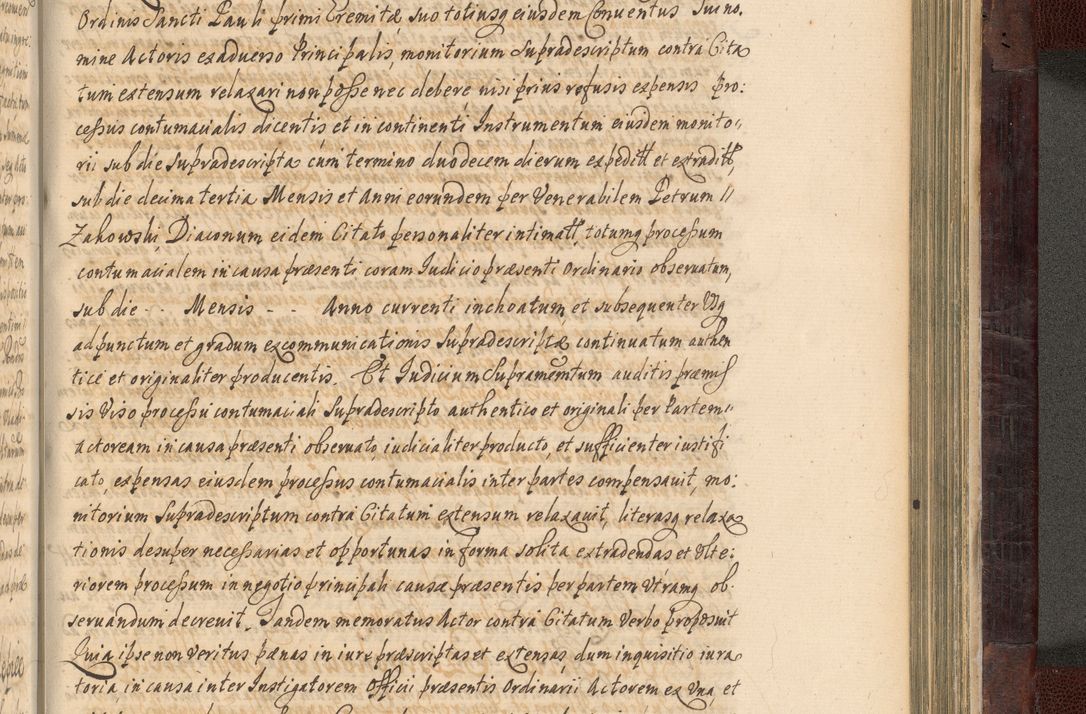 Ordinis Sancti Pauli primi Eremitæ, suo totiusq eiusdem Conuentus Sui no.
mine Actoris ex aduerso Principalis, monitorium Supradescriptum contra Cita
tum extensum relaxari non posse nec debere nisi prius refusis expensis Pro:
cessus contumacialis dicentis et in continenti Instrumentum eiusdem monito"
rii sub die Supradescripta cum termino duodecem dierum expeditt et extraditt,
sub die decima tertia Mensis et Anni eorundem per Venerabilem Petrum //
Zakowski, Diaconum eidem Citato personaliter intimatt, totumq processum
contumacialem in causa præsenti coram Iudicio præsenti Ordinario obseruatum,
sub die - - Mensis - - Anno currenti inchoatum, et subsequenter Vsq
ad punctum et gradum excommunicationis Supradescriptæ continuatum authen
tice et originaliter producentis. Et Iudicium Supramemtum auditis præmis
sis Viso processu contumaciali Supradescripto authentico et originali per Partem"
actoream in causa præsenti obseruato, iudicialiter producto, et sufficienter iustifi
cato, expensas eiusdem processus contumacialis inter partes compensauit, mo:
nitorium Supradescriptum contra Citatum extensum relaxauit, literasq relaxa
tionis desuper necessarias et opportunas in forma solita extradendas et Vlte:
riorem processum in negotio principali causæ præsentis per partem Vtramq ob
seruandum decreuit. Tandem memoratus Actor contra Citatum Verbo proposuit
Quia ipse non Veritus pænas in iure præscriptas et extensas, dum inquisitio iura
toria, in causa inter Instigatorem Officii præsentis Ordinarii Actorem ex Vna, et